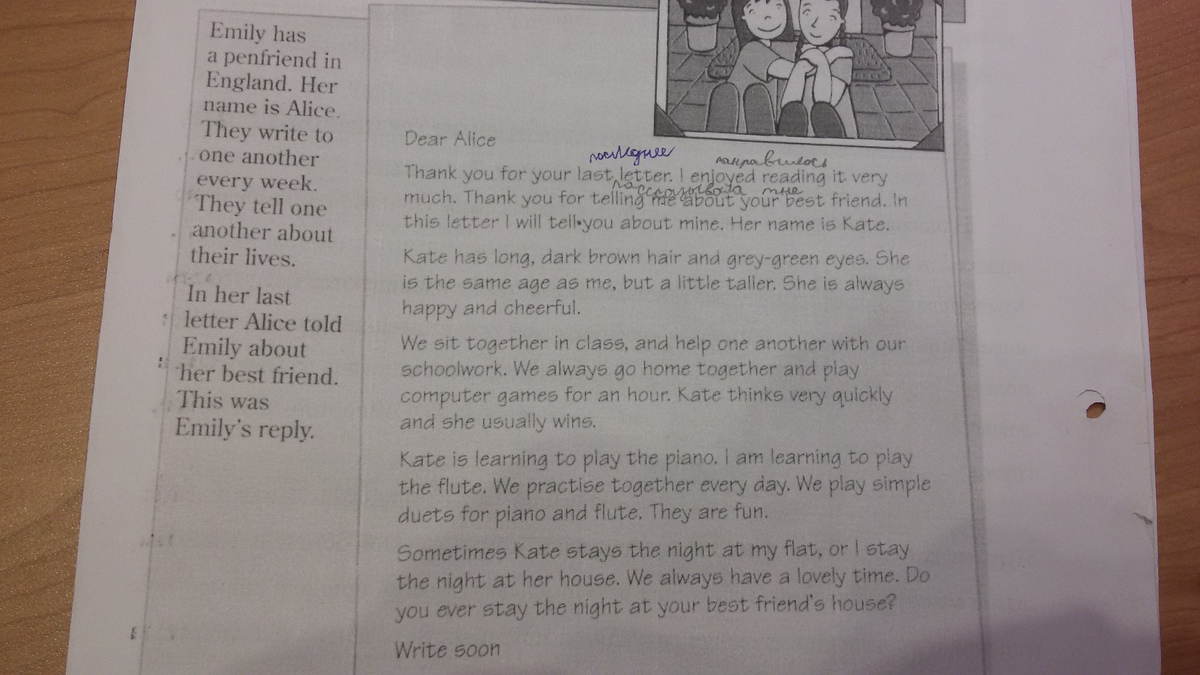 Emily has
a penfriend in
England. Her
name is Alice.
They write to
one another
every week.
They tell one
another about
their lives.
In her last
letter Alice told
Emily about
her best friend.
This was
Emily's reply.
Dear Alice
последнее
Thank you for your last letter. I enjoyed reading it very
мне
much. Thank you for telling me about your best friend. In
this letter I will tell you about mine. Her name is Kate.
Kate has long, dark brown hair and grey-green eyes. She
is the same age as me, but a little taller. She is always
happy and cheerful.
We sit together in class, and help one another with our
schoolwork. We always go home together and play
computer games for an hour. Kate thinks very quickly
and she usually wins.
Kate is learning to play the piano. I am learning to play
the flute. We practise together every day. We play simple
duets for piano and flute. They are fun.
Sometimes Kate stays the night at my flat, or I stay
the night at her house. We always have a lovely time. Do
you ever stay the night at your best friend's house?
Write soon